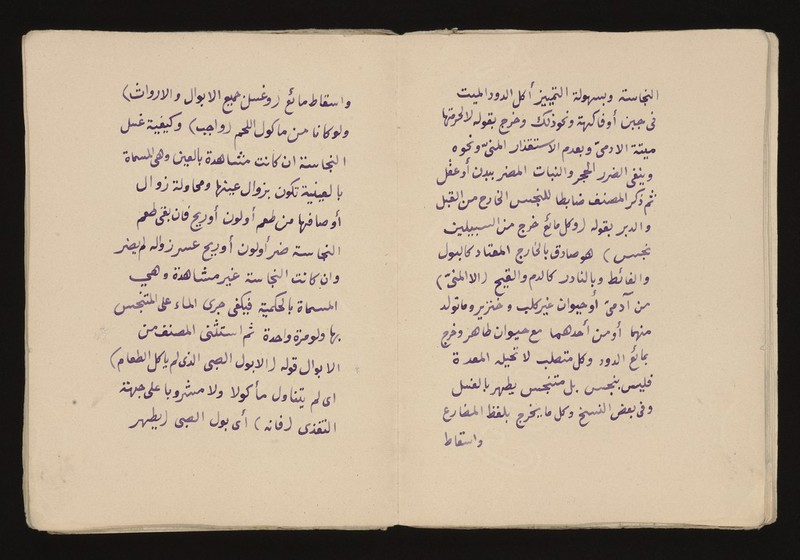 النجاسة وبسهولة التمييز أكل الدود الميت
فى جبن أوفاكهة ونحوذلك وخرج بقوله لالحرمتها
ميتة الادمىّ وبعدم الاستقذار المنىّ ونحوه
وبنفى الضرر الحجر والنبات المضر ببدن أوعقل
ثم ذكر المصنف ضابطا للنجس الخارج من القبل
والدبر بقوله (وكل مائع خرج من السبيلين
نجس) هوصادق بالخارج المعتاد كالبول
والغائط وبالنادر كالدم والقيح (الاالمنىّ)
من آدمىّ أوحيوان غيركلب وخنزير وماتولد
منهما أومن أحدهما مع حيوان طاهر وخرج
بمائع الدود وكل متصلب لاتحيله المعدة
فليس بنجس بل متنجس يطهر بالغسل
وفى بعض النسخ وكل ما يخرج بلفظ المضارع
واسقاط
واسقاط مائع (وغسل جميع الابوال والارواث)
ولوكانا من ماكول اللحم (واجب) وكيفية غسل
النجاسة ان كانت مشاهدة بالعين وهى المسماة
بالعينية تكون بزوال عينها ومحاولة زوال
أوصافها من طعم أولون أوريح فان بقى طعم
النجاسة ضر أولون أوريح عسر زواله لم يضر
وان كانت النجاسة غير مشاهدة وهى
المسماة بالحكمية فيكفى جرى الماء على المتنجس
بها ولومرة واحدة ثم استثنى المصنف من
الابوال قوله (الابول الصبى الذى لم ياكل الطعام)
اى لم يتناول مأكولا ولا مشروبا على جهة
التغذى (فانه) أى بول الصبى (يطهر